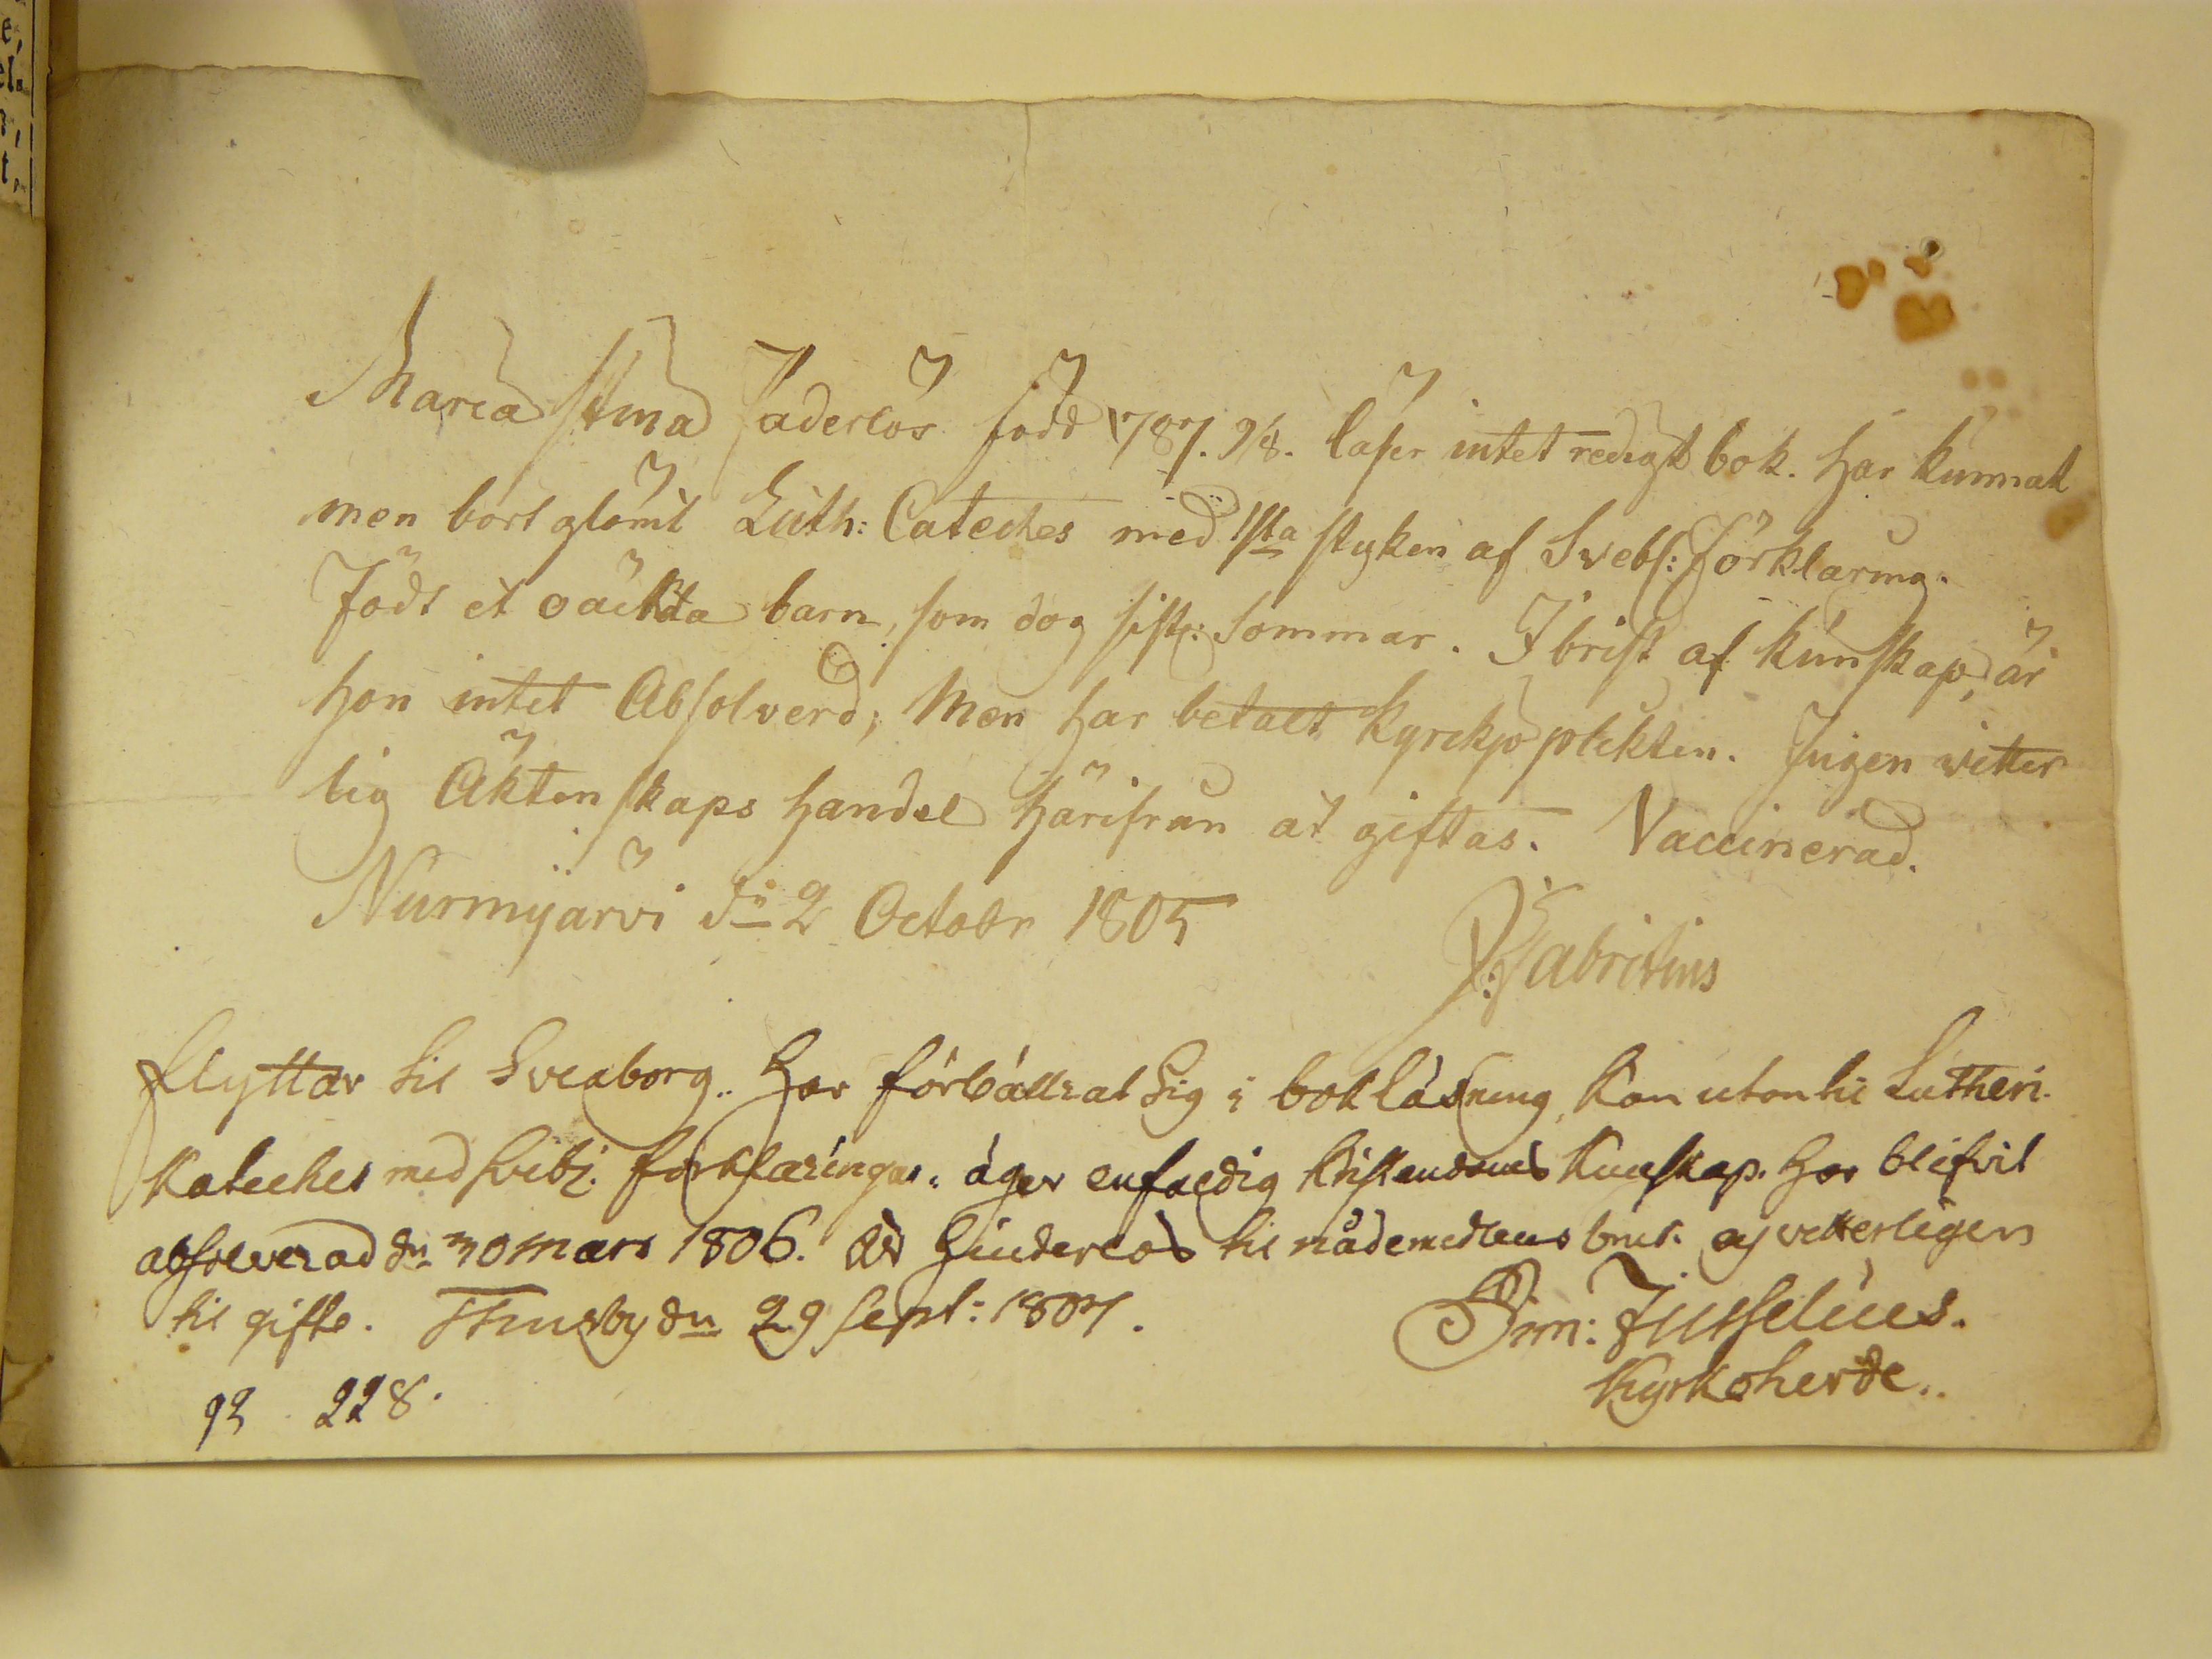 e,
el.
t,
Maria Stina Faderlös född 1787. 9/8. läser intet redigt bok. har kunnat
men bort glömt Luth: Cateches med 1sta styken af Svebs: Förklaring.
Födt et oäckta barn, som dog sistl: Sommar. I brist af kunskap, är
hon intet Absolverd; Men har betalt Kyrckjo plikten. Ingen witter
lig Äktenskaps handel härifrån at giftas. Vaccinerad.
Nurmijärvi dn 2 Octobr 1805
P: Fabritius
flyttar til Sveaborg. Har förbättrat Sig i bokläsning, kan utan til Lutheri
Kateches med Svebj. förklaringar. äger enfaldig Kristendoms Kunskap. Har blifvit
absolverad dn 30 Mars 1806. Är hinderlös til nådemedlens bruk. ej vetterligen
til gifte. Thusby dn 29 Sept: 1807.
Sim: Jusselius.
Kyrkoherde.
92 228.